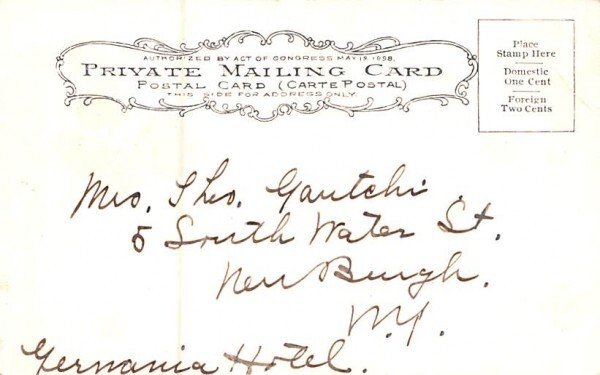 AUTHORIZED BY ACT OF CONGRESS MAY 19, 1898.
PRIVATE MAILING CARD
POSTAL CARD (CARTE POSTAL)
THIS SIDE FOR ADDRESS ONLY.
Place
Stamp Here
Domestic
One Cent
Foreign
Two Cents
Mrs. Theo. Gautchi
5 South Water St.
New Burgh.
N.Y.
Germania Hotel.